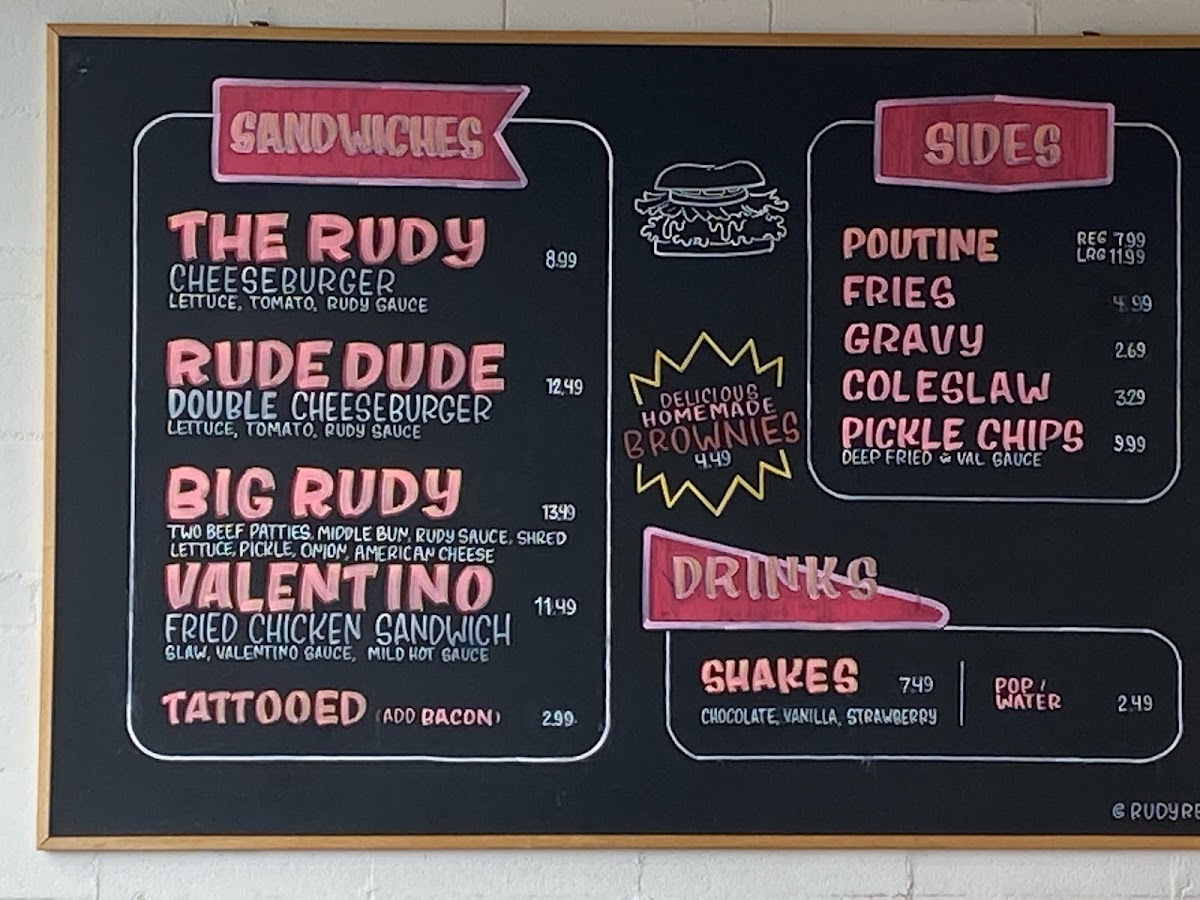 SANDWICHES
THE RUDY 8.99
CHEESEBURGER
LETTUCE, TOMATO, RUDY SAUCE
RUDE DUDE 12.49
DOUBLE CHEESEBURGER
LETTUCE, TOMATO, RUDY SAUCE
BIG RUDY 13.49
TWO BEEF PATTIES, MIDDLE BUN, RUDY SAUCE, SHRED
LETTUCE, PICKLE, ONION, AMERICAN CHEESE
VALENTINO 11.49
FRIED CHICKEN SANDWICH
SLAW, VALENTINO SAUCE, MILD HOT SAUCE
TATTOOED (ADD BACON) 2.99
DELICIOUS
HOMEMADE
BROWNIES
4.49
SIDES
POUTINE REG 7.99
LRG 11.99
FRIES 4.99
GRAVY 2.69
COLESLAW 3.29
PICKLE CHIPS 9.99
DEEP FRIED & VAL SAUCE
DRINKS
SHAKES 7.49
CHOCOLATE, VANILLA, STRAWBERRY
POP /
WATER 2.49
@RUDYRE